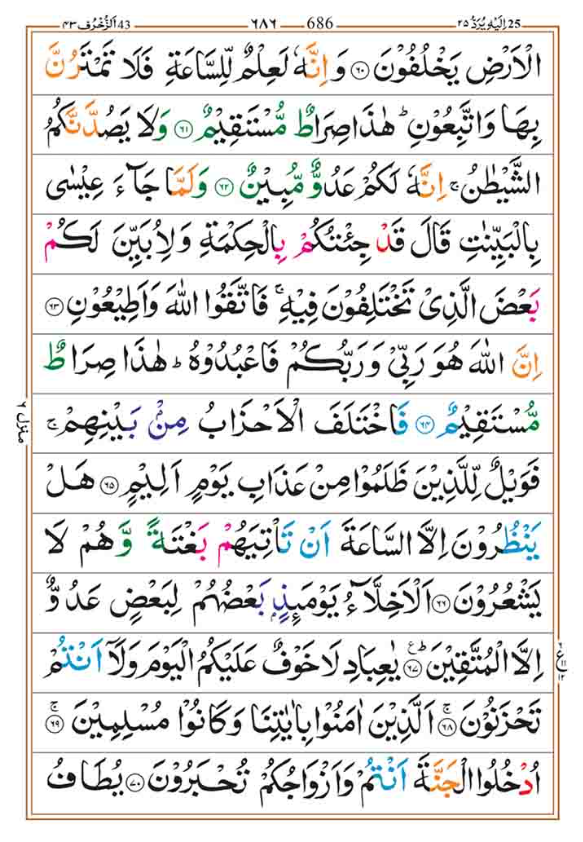 اَلزُّخْرُف ٤٣ 43 ٦٨٦ 686 اِلَيْهِ يُرَدُّ ٢٥ 25
الْاَرْضِ يَخْلُفُوْنَ ۝٦٠ وَاِنَّهٗ لَعِلْمٌ لِّلسَّاعَةِ فَلَا تَمْتَرُنَّ
بِهَا وَاتَّبِعُوْنِ ؕ هٰذَا صِرَاطٌ مُّسْتَقِيْمٌ ۝٦١ وَلَا يَصُدَّنَّكُمُ
الشَّيْطٰنُ ۚ اِنَّهٗ لَكُمْ عَدُوٌّ مُّبِيْنٌ ۝٦٢ وَلَمَّا جَآءَ عِيْسٰى
بِالْبَيِّنٰتِ قَالَ قَدْ جِئْتُكُمْ بِالْحِكْمَةِ وَلِاُبَيِّنَ لَكُمْ
بَعْضَ الَّذِىْ تَخْتَلِفُوْنَ فِيْهِ ۚ فَاتَّقُوا اللّٰهَ وَاَطِيْعُوْنِ ۝٦٣
اِنَّ اللّٰهَ هُوَ رَبِّىْ وَرَبُّكُمْ فَاعْبُدُوْهُ ؕ هٰذَا صِرَاطٌ
مُّسْتَقِيْمٌ ۝٦٤ فَاخْتَلَفَ الْاَحْزَابُ مِنْۢ بَيْنِهِمْ ۚ
فَوَيْلٌ لِّلَّذِيْنَ ظَلَمُوْا مِنْ عَذَابِ يَوْمٍ اَلِيْمٍ ۝٦٥ هَلْ
يَنْظُرُوْنَ اِلَّا السَّاعَةَ اَنْ تَاْتِيَهُمْ بَغْتَةً وَّهُمْ لَا
يَشْعُرُوْنَ ۝٦٦ اَلْاَخِلَّآءُ يَوْمَئِذٍۭ بَعْضُهُمْ لِبَعْضٍ عَدُوٌّ
اِلَّا الْمُتَّقِيْنَ ۝٦٧ يٰعِبَادِ لَا خَوْفٌ عَلَيْكُمُ الْيَوْمَ وَلَاۤ اَنْتُمْ
تَحْزَنُوْنَ ۝٦٨ اَلَّذِيْنَ اٰمَنُوْا بِاٰيٰتِنَا وَكَانُوْا مُسْلِمِيْنَ ۝٦٩
اُدْخُلُوا الْجَنَّةَ اَنْتُمْ وَاَزْوَاجُكُمْ تُحْبَرُوْنَ ۝٧٠ يُطَافُ
منزل ٦